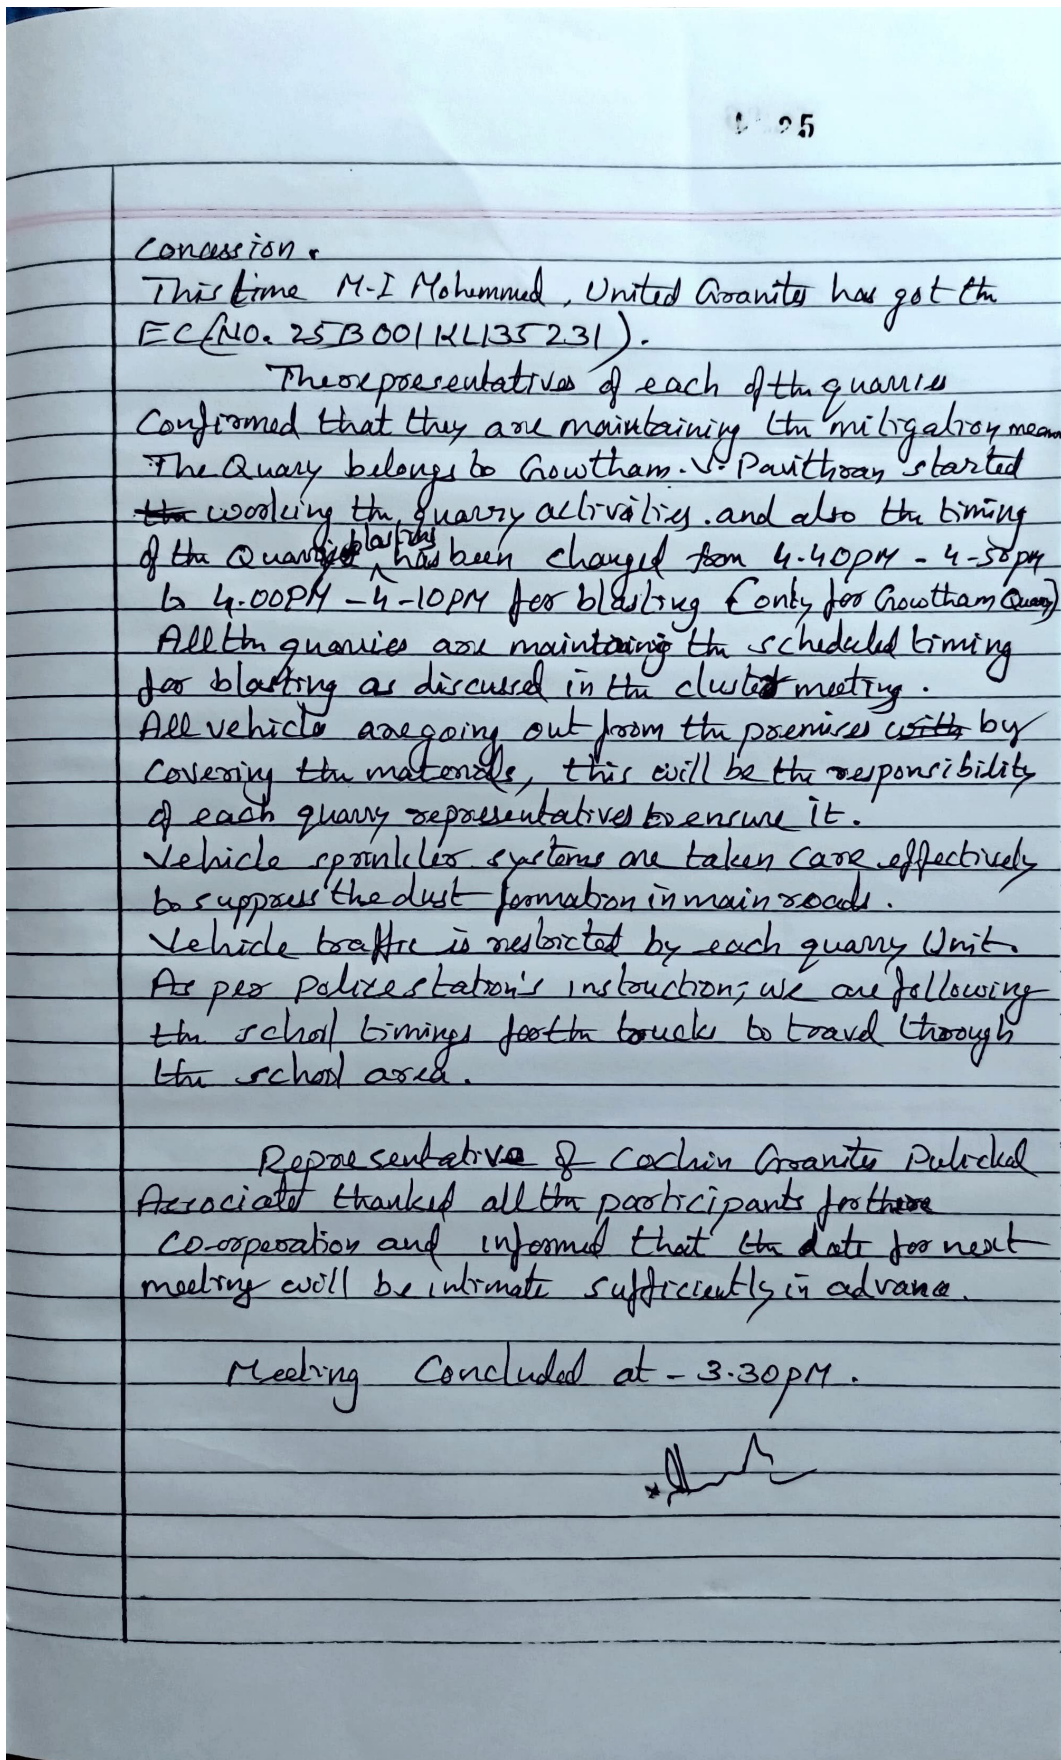 25
Concession.
This time M-I Mohammed, United Granites has got the
EC (NO. 25B001KL135231).
The representatives of each of the quarries
Confirmed that they are maintaining the mitigation
The Quary belongs to Gowtham. V. Pavithran started
working the quarry activities. and also the timing
of the Quarries blasting has been changed from 4.40PM - 4-50PM
to 4.00PM - 4-10PM for blasting (only for Gowtham Quary)
All the quarries are maintaining the scheduled timing
for blasting as discussed in the cluster meeting.
All vehicles are going out from the premises by
Covering the materials, this will be the responsibility
of each quarry representatives to ensure it.
Vehicle sprinkler systems are taken care effectively
to suppress the dust formation in main roads.
Vehicle traffic is restricted by each quarry Unit.
As per police station's instruction, we are following
the school timings for the trucks to travel through
the school area.
Representative of Cochin Granites Pulickal
Associates thanked all the participants for there
co-orperation and informed that the date for next
meeting will be intimate sufficiently in advance.
Meeting Concluded at - 3.30PM.